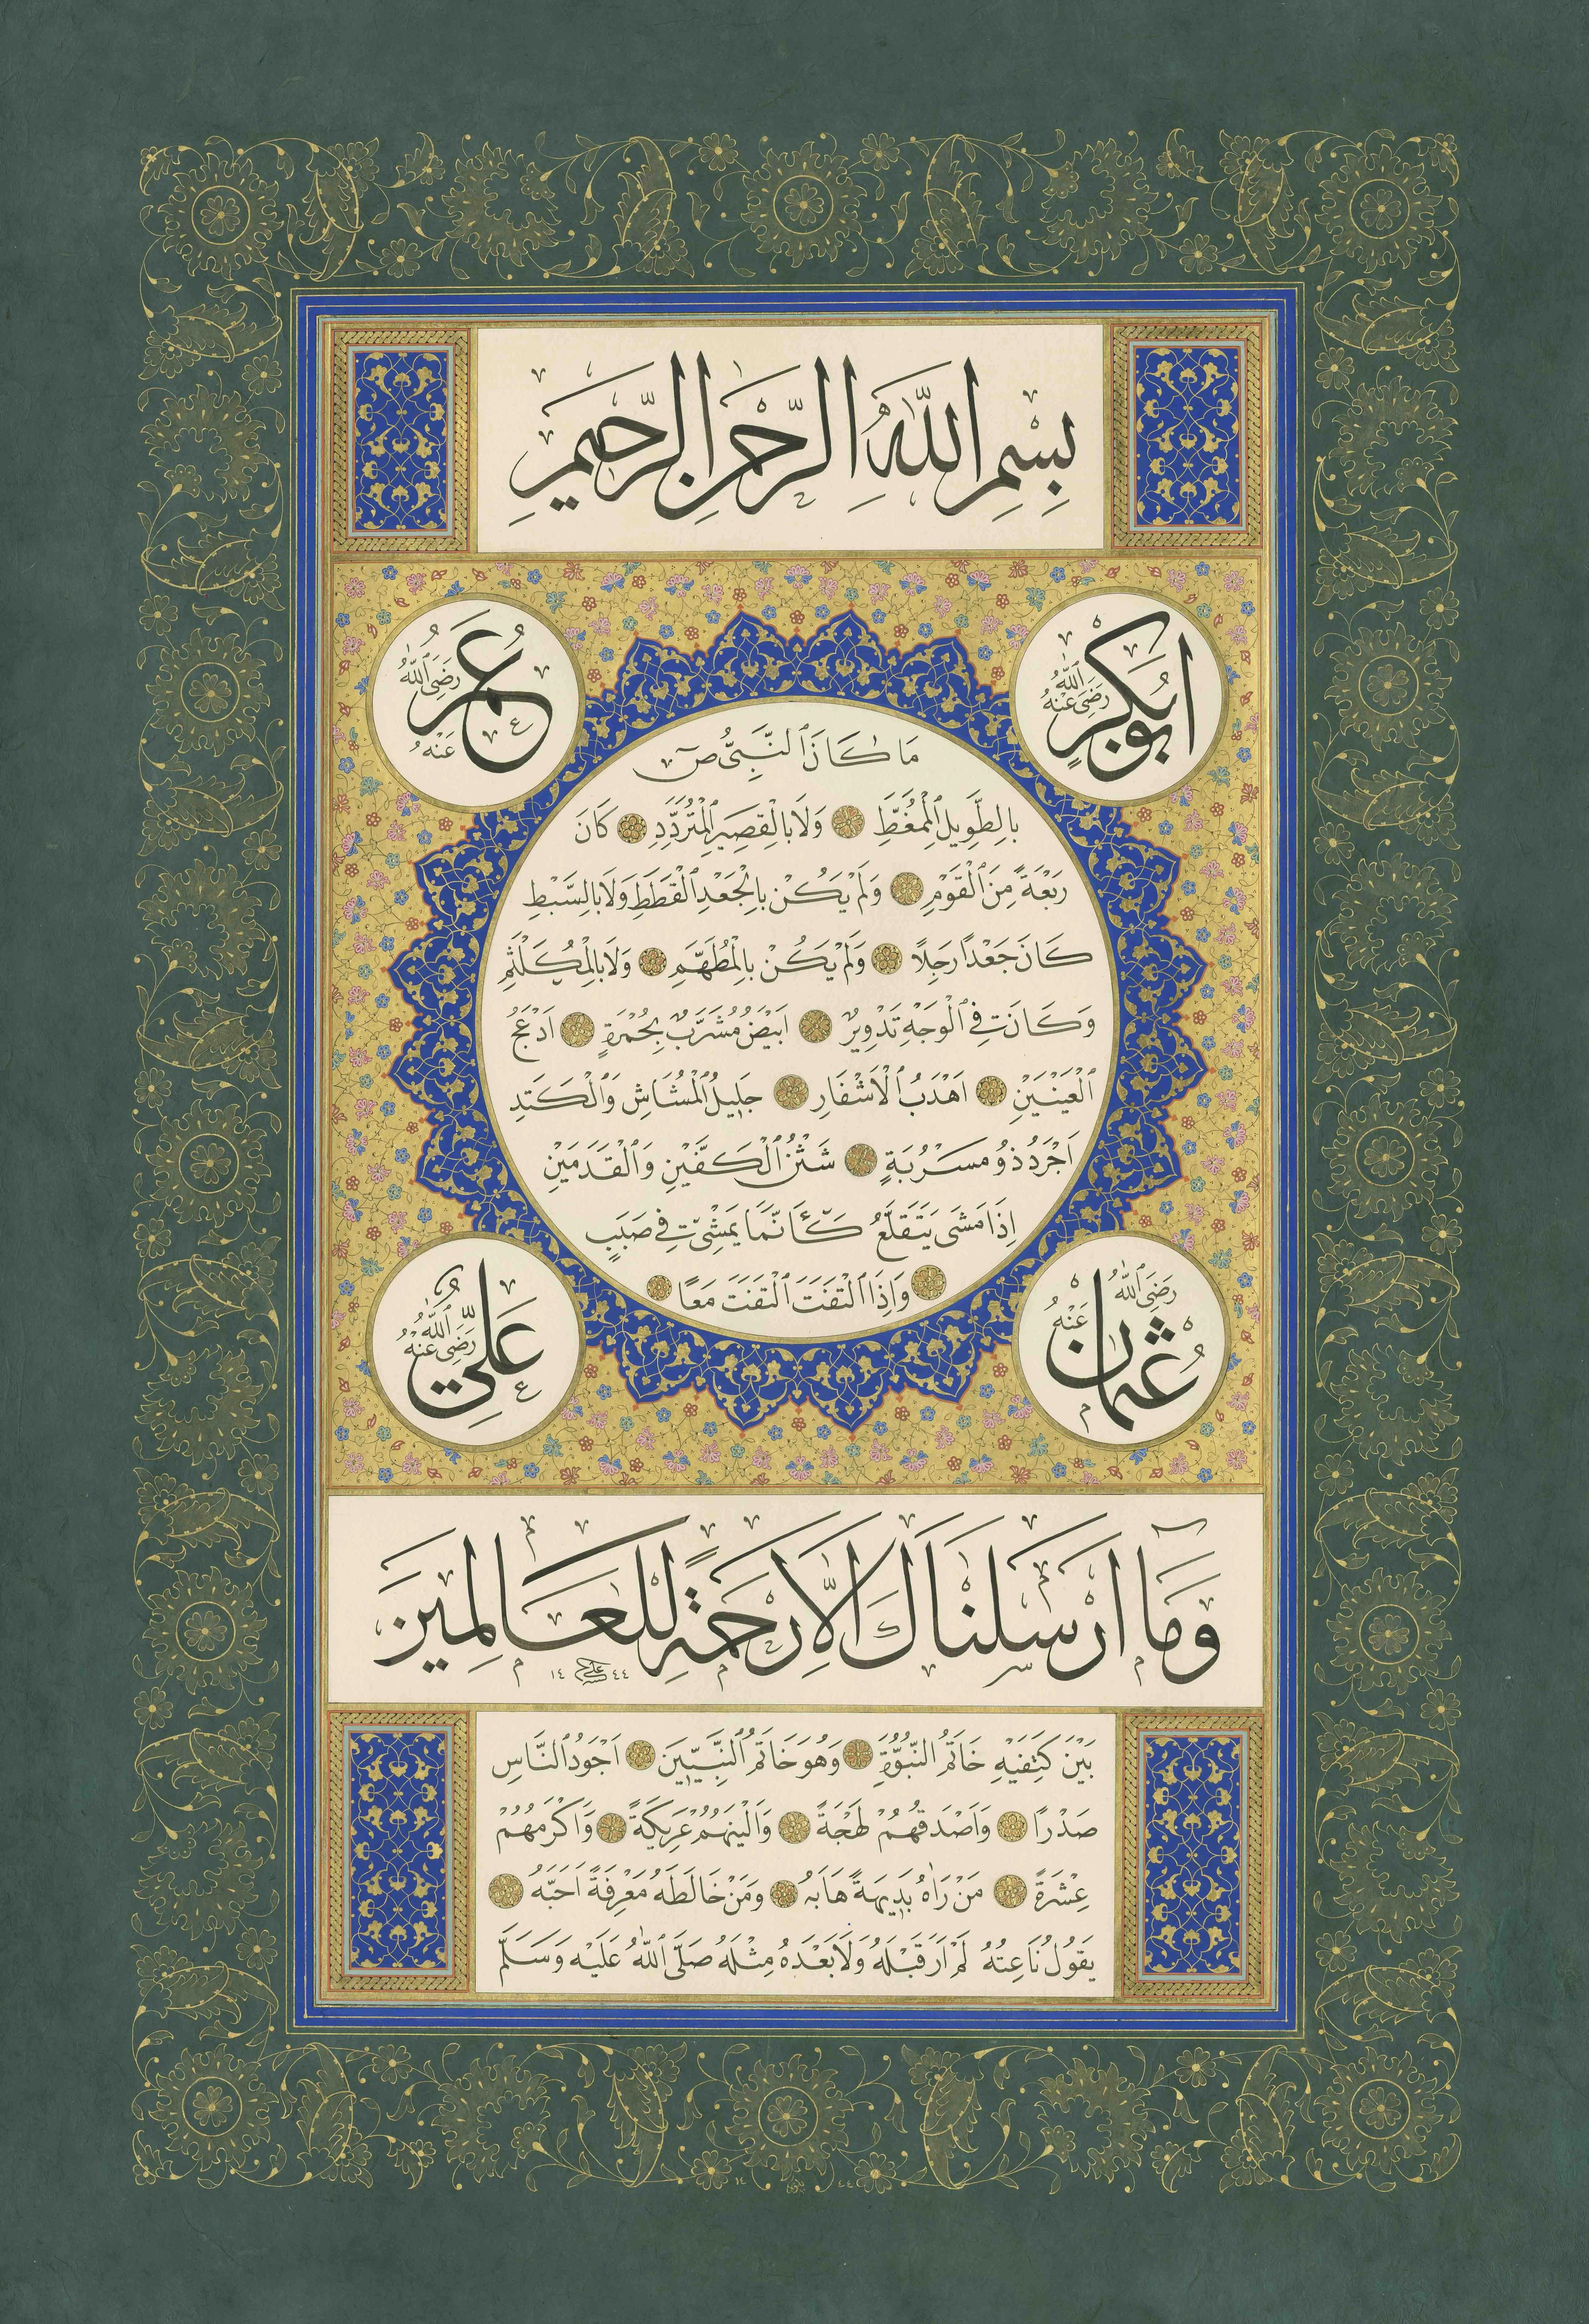 بِسْمِ اللّٰهِ الرَّحْمٰنِ الرَّحِيمِ
اَبُو بَكْرٍ رَضِيَ اللّٰهُ عَنْهُ
عُمَرُ رَضِيَ اللّٰهُ عَنْهُ
مَا كَانَ النَّبِيُّ ص
بِالطَّوِيلِ الْمُمَغَّطِ وَلَا بِالْقَصِيرِ الْمُتَرَدِّدِ كَانَ
رَبْعَةً مِنَ الْقَوْمِ وَلَمْ يَكُنْ بِالْجَعْدِ الْقَطَطِ وَلَا بِالسَّبْطِ
كَانَ جَعْدًا رَجِلًا وَلَمْ يَكُنْ بِالْمُطَهَّمِ وَلَا بِالْمُكَلْثَمِ
وَكَانَ فِي الْوَجْهِ تَدْوِيرٌ اَبْيَضُ مُشَرَّبٌ بِحُمْرَةٍ اَدْعَجُ
الْعَيْنَيْنِ اَهْدَبُ الْاَشْفَارِ جَلِيلُ الْمُشَاشِ وَالْكَتَدِ
اَجْرَدُ ذُو مَسْرُبَةٍ شَثْنُ الْكَفَّيْنِ وَالْقَدَمَيْنِ
اِذَا مَشَى يَتَقَلَّعُ كَاَنَّمَا يَمْشِي فِي صَبَبٍ
وَاِذَا الْتَفَتَ الْتَفَتَ مَعًا
عُثْمَانُ رَضِيَ اللّٰهُ عَنْهُ
عَلِيٌّ رَضِيَ اللّٰهُ عَنْهُ
وَمَا اَرْسَلْنَاكَ اِلَّا رَحْمَةً لِلْعَالَمِينَ
١٤ علي ٤٤
بَيْنَ كَتِفَيْهِ خَاتَمُ النُّبُوَّةِ وَهُوَ خَاتَمُ النَّبِيِّينَ اَجْوَدُ النَّاسِ
صَدْرًا وَاَصْدَقُهُمْ لَهْجَةً وَاَلْيَنُهُمْ عَرِيكَةً وَاَكْرَمُهُمْ
عِشْرَةً مَنْ رَاٰهُ بَدِيهَةً هَابَهُ وَمَنْ خَالَطَهُ مَعْرِفَةً اَحَبَّهُ
يَقُولُ نَاعِتُهُ لَمْ اَرَ قَبْلَهُ وَلَا بَعْدَهُ مِثْلَهُ صَلَّى اللّٰهُ عَلَيْهِ وَسَلَّمَ